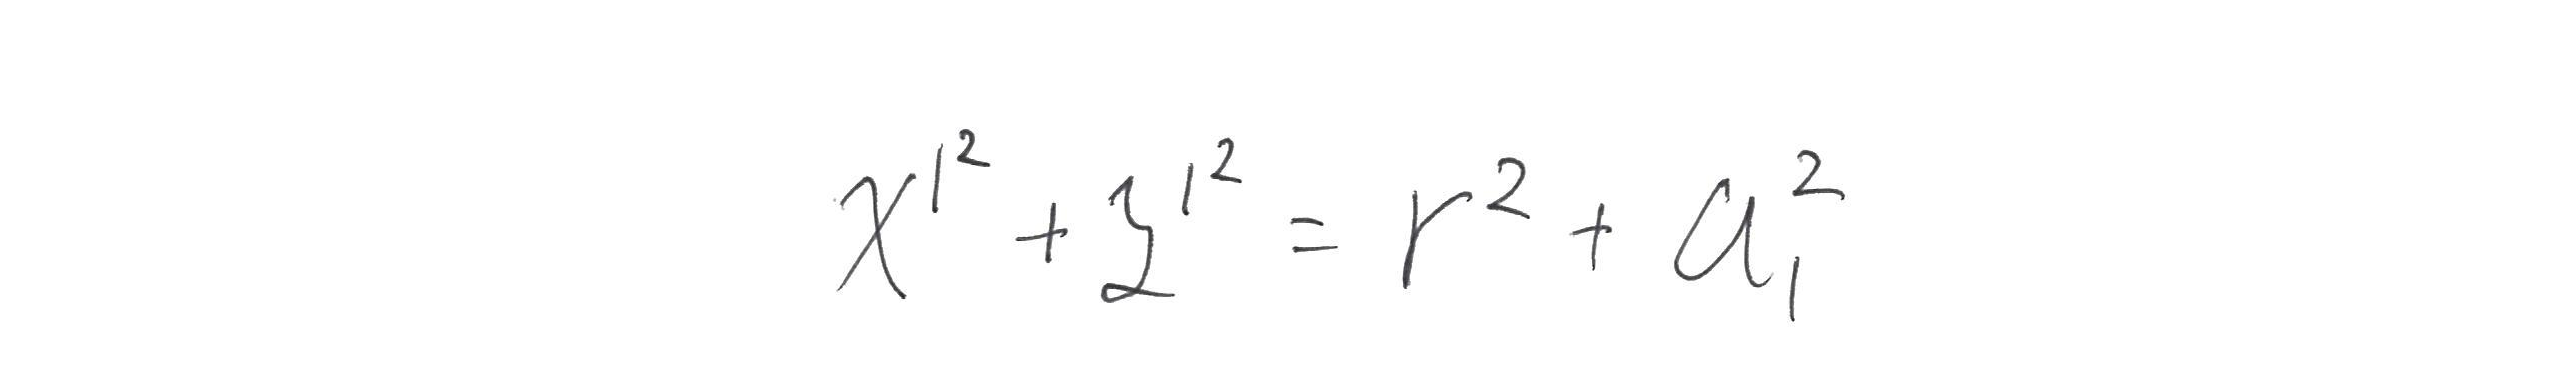 x'² + z'² = r² + a₁²